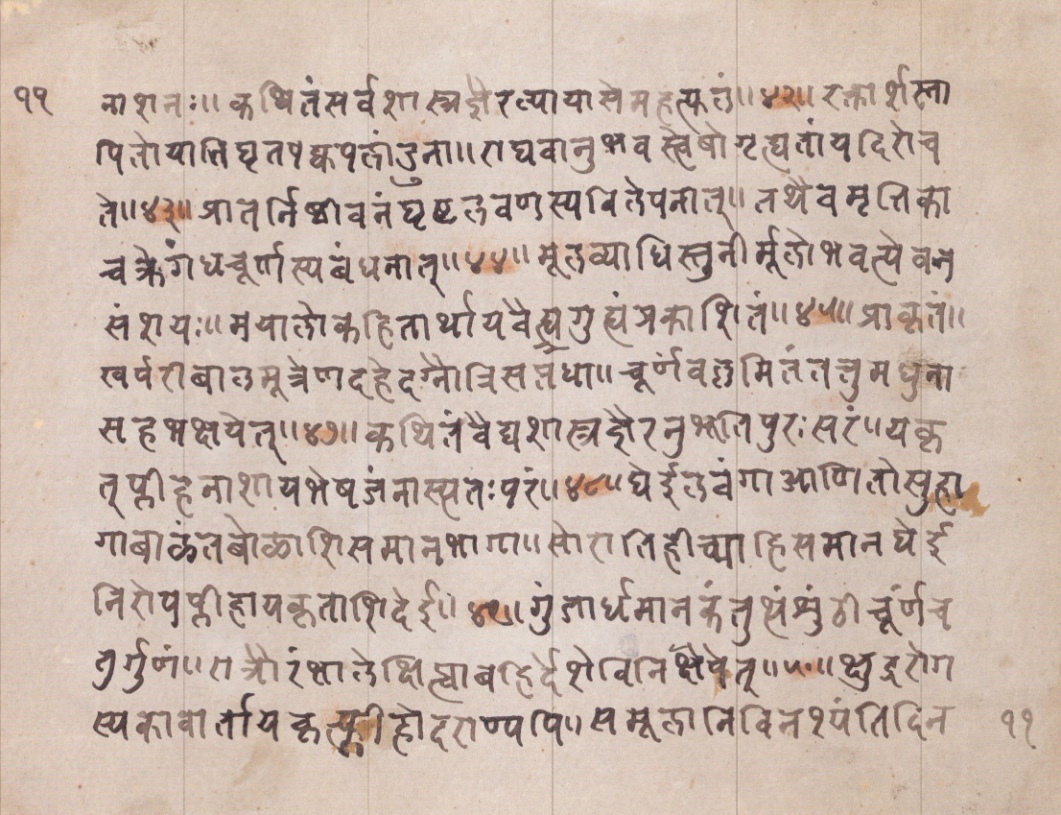 ११ नाशनः॥ कथितं सर्वशास्त्रज्ञैरल्पायासेमहत्फलं॥४२॥ रक्तार्शस्ना
पितोयातिघृतपक्कपलांडुना॥ राघवानुभवस्त्वेषोगृह्यतांयदिरोच
ते॥४३॥ प्रातर्निष्ठीवनंघृष्टलवणस्यविलेपनात्॥ तथैवमृत्तिका
गंधचूर्णस्यबंधनात्॥४४॥ मूलव्याधिस्तुनीर्मूलोभवत्येवन
संशयः॥ मयालोकेहितार्थायवैद्यगुह्यंप्रकाशितं॥४५॥ प्राकृतं॥
खर्परांबालमूत्रेणदहेदग्नौत्रिसप्तधा॥ चूर्णंवल्लमितंतत्तुमधुना
सहभक्षयेत्॥४७॥ कथितंवैद्यशास्त्रज्ञैरनुभूतिपुरःसरं॥ यकृ
त्प्लीहनाशायभेषजंनास्त्यतःपरं॥४८॥ घेईलवंगाआणितोसुहा
गाबाळंतबोळाशिसमानभागा॥ सोरातिहीच्याहिसमानघेई
निरोपप्लीहायकृताशिदेई॥४९॥ गुंजार्धमानकंतुत्थंशुंठीचूर्णंच
तुर्गुणं॥ रात्रौरंभाफलेक्षिप्त्वाबहिर्देशेविनिक्षिपेत्॥५०॥ क्षुद्ररोग
स्यकावार्तायकृत्प्लीहोदराण्यपि॥ समूलानिविनश्यंतिदिन ११